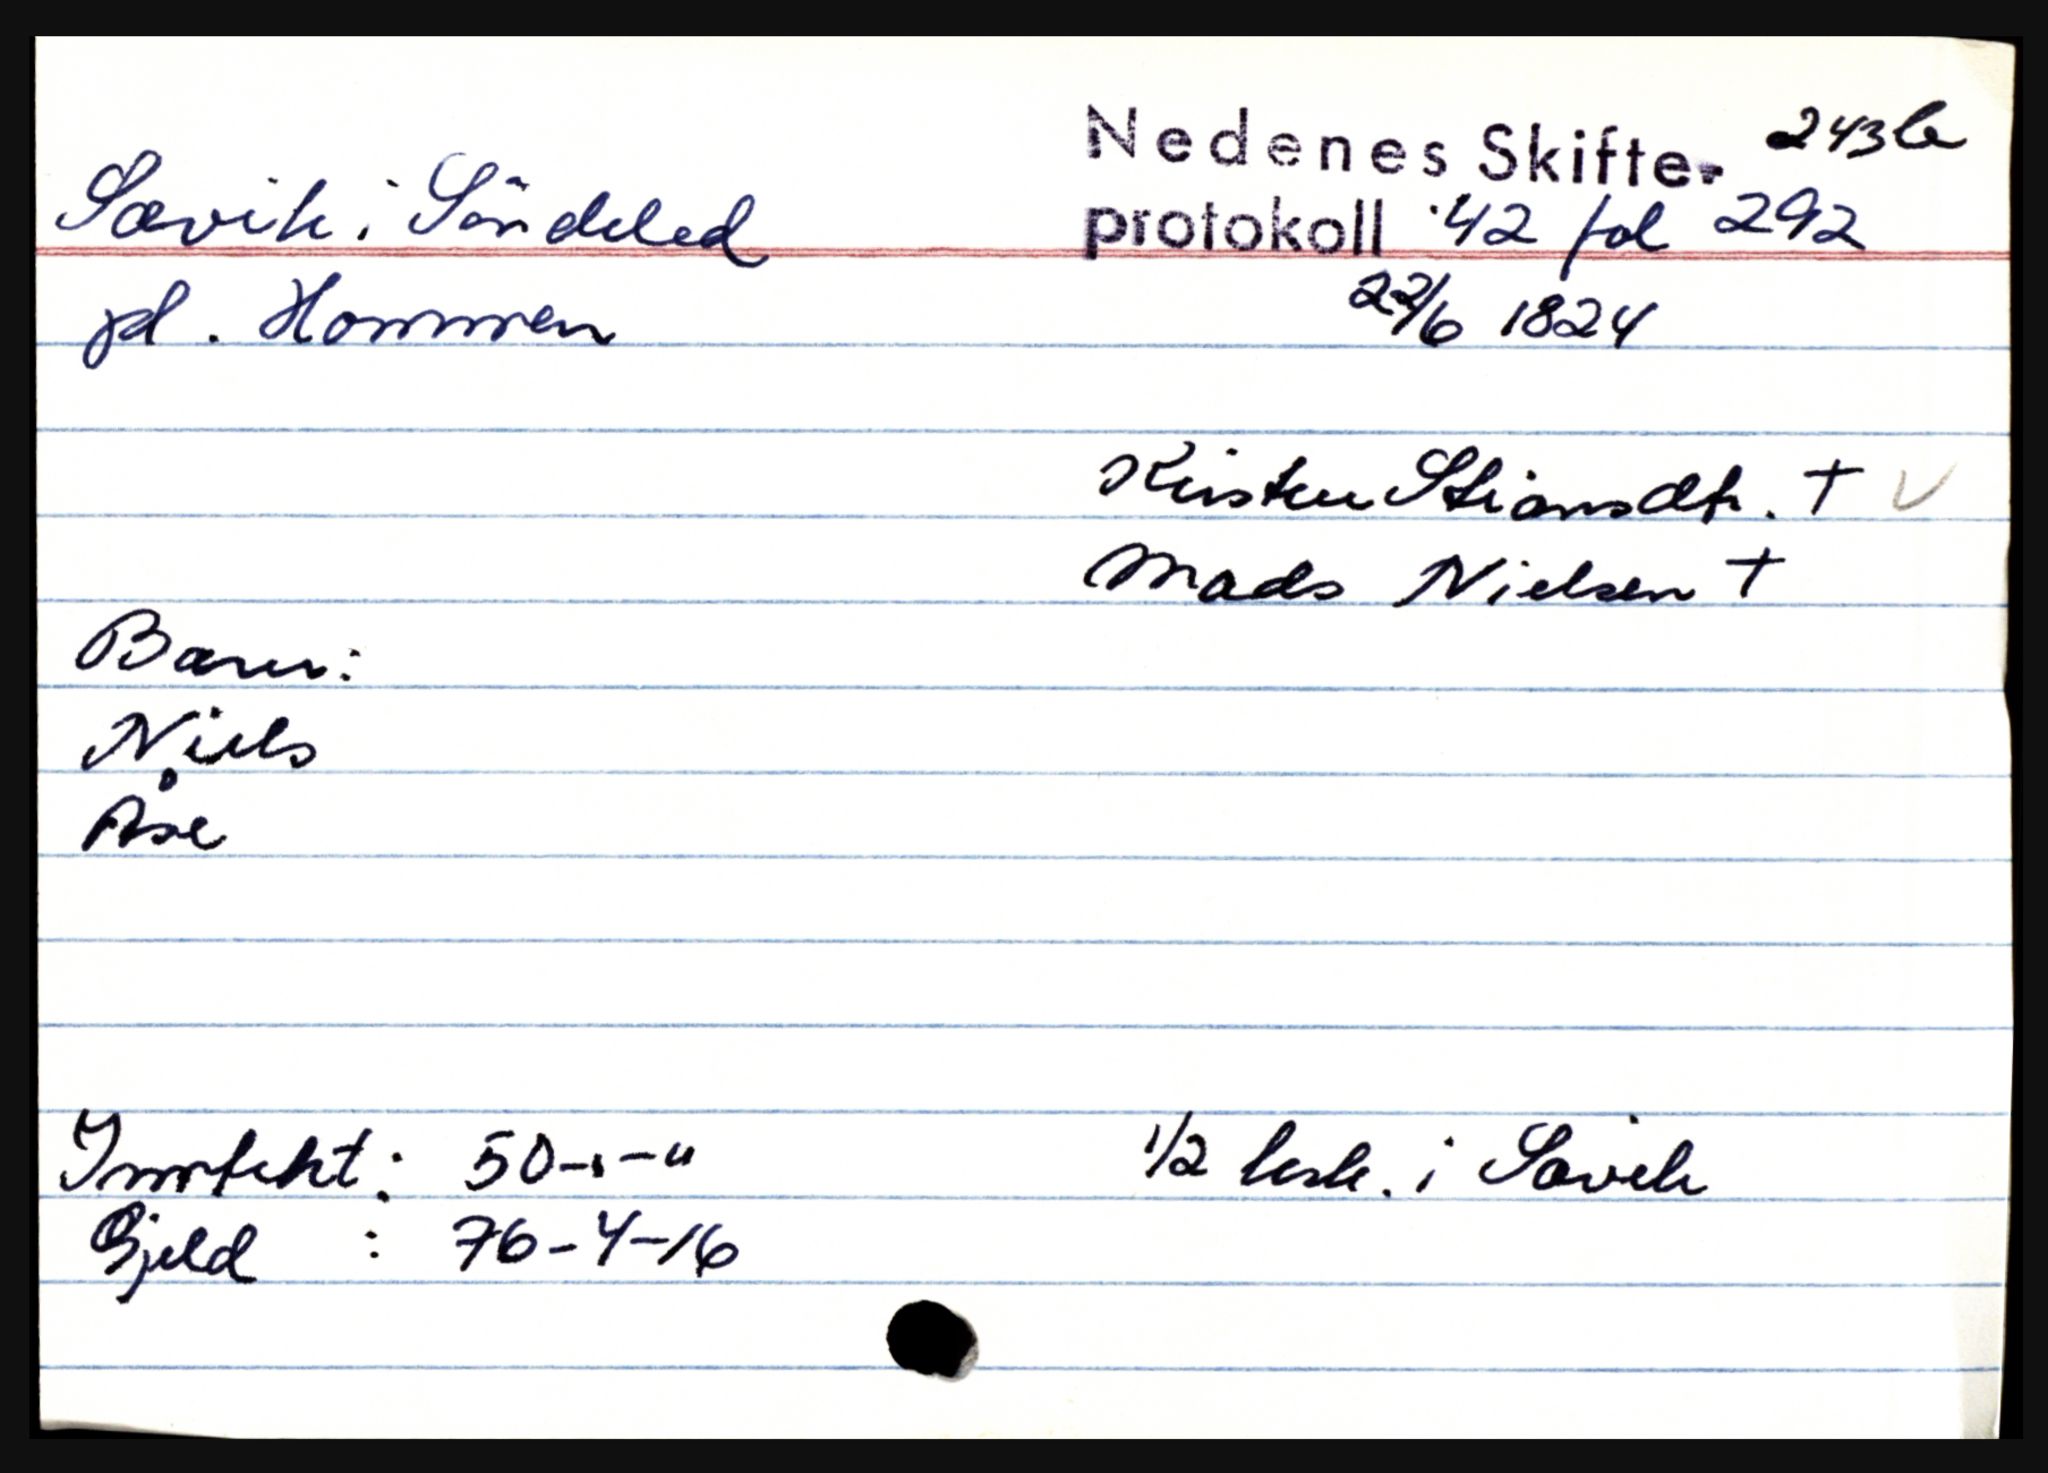 Nedenes Skifte- 243b
Sævik i Søndeled protokoll 42 fol 292
pl. Hommen 22/6 1824
Kirsten Stiansdtr. †
Mads Nielsen †
Barn:
Niels
Åse
Inntekt: 50-"-"
1/2 besk. i Sævik
Gjeld : 76-4-16